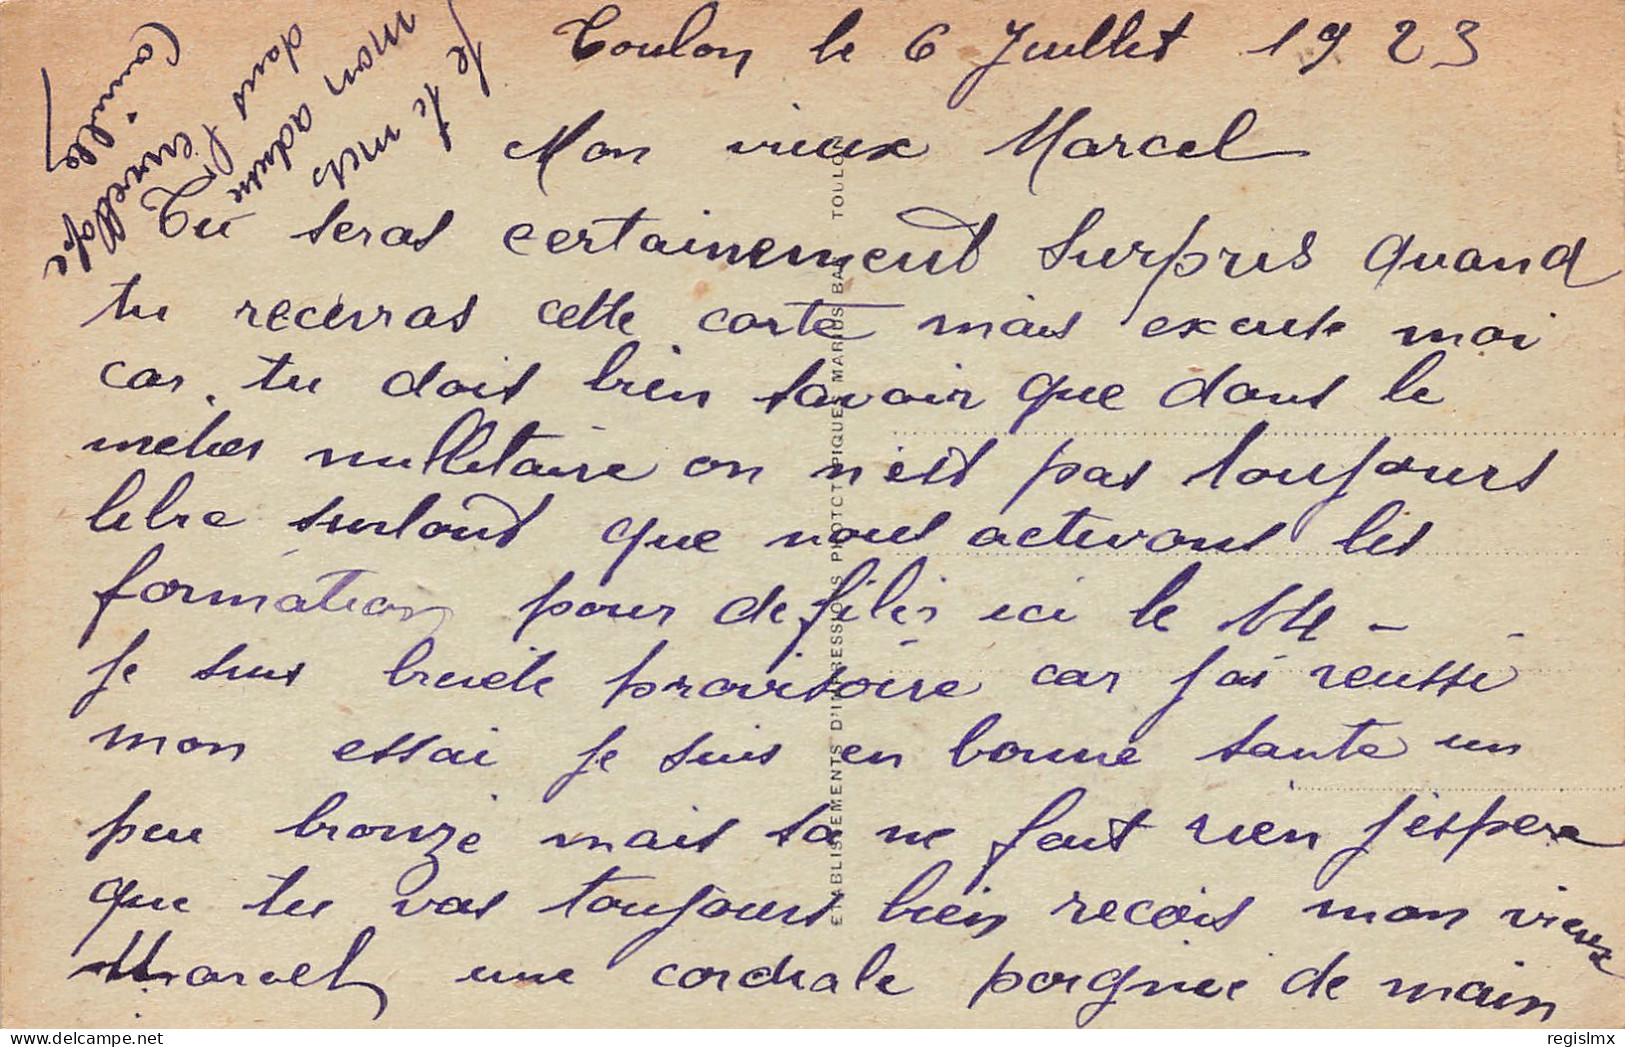 Toulon le 6 Juillet 1923
Mon vieux Marcel
Tu seras certainement surpris quand
tu recevras cette carte mais excuse moi
car tu dois bien savoir que dans le
metier millitaire on n'est pas toujours
libre surtout que nous activons les
formation pour defiler ici le 14 -
je suis breveté provisoire car j'ai reussi
mon essai je suis en bonne santé un
peu bronzé mais sa ne fait rien j'espere
que tu vas toujours bien recois mon vieux
Marcel une cordiale poignée de main
Je te mets
mon adresse
dans l'envellope
Camille
ETABLISSEMENTS D'IMPRESSIONS PHOTOTYPIQUES MARIUS BAR TOULON
regislmx